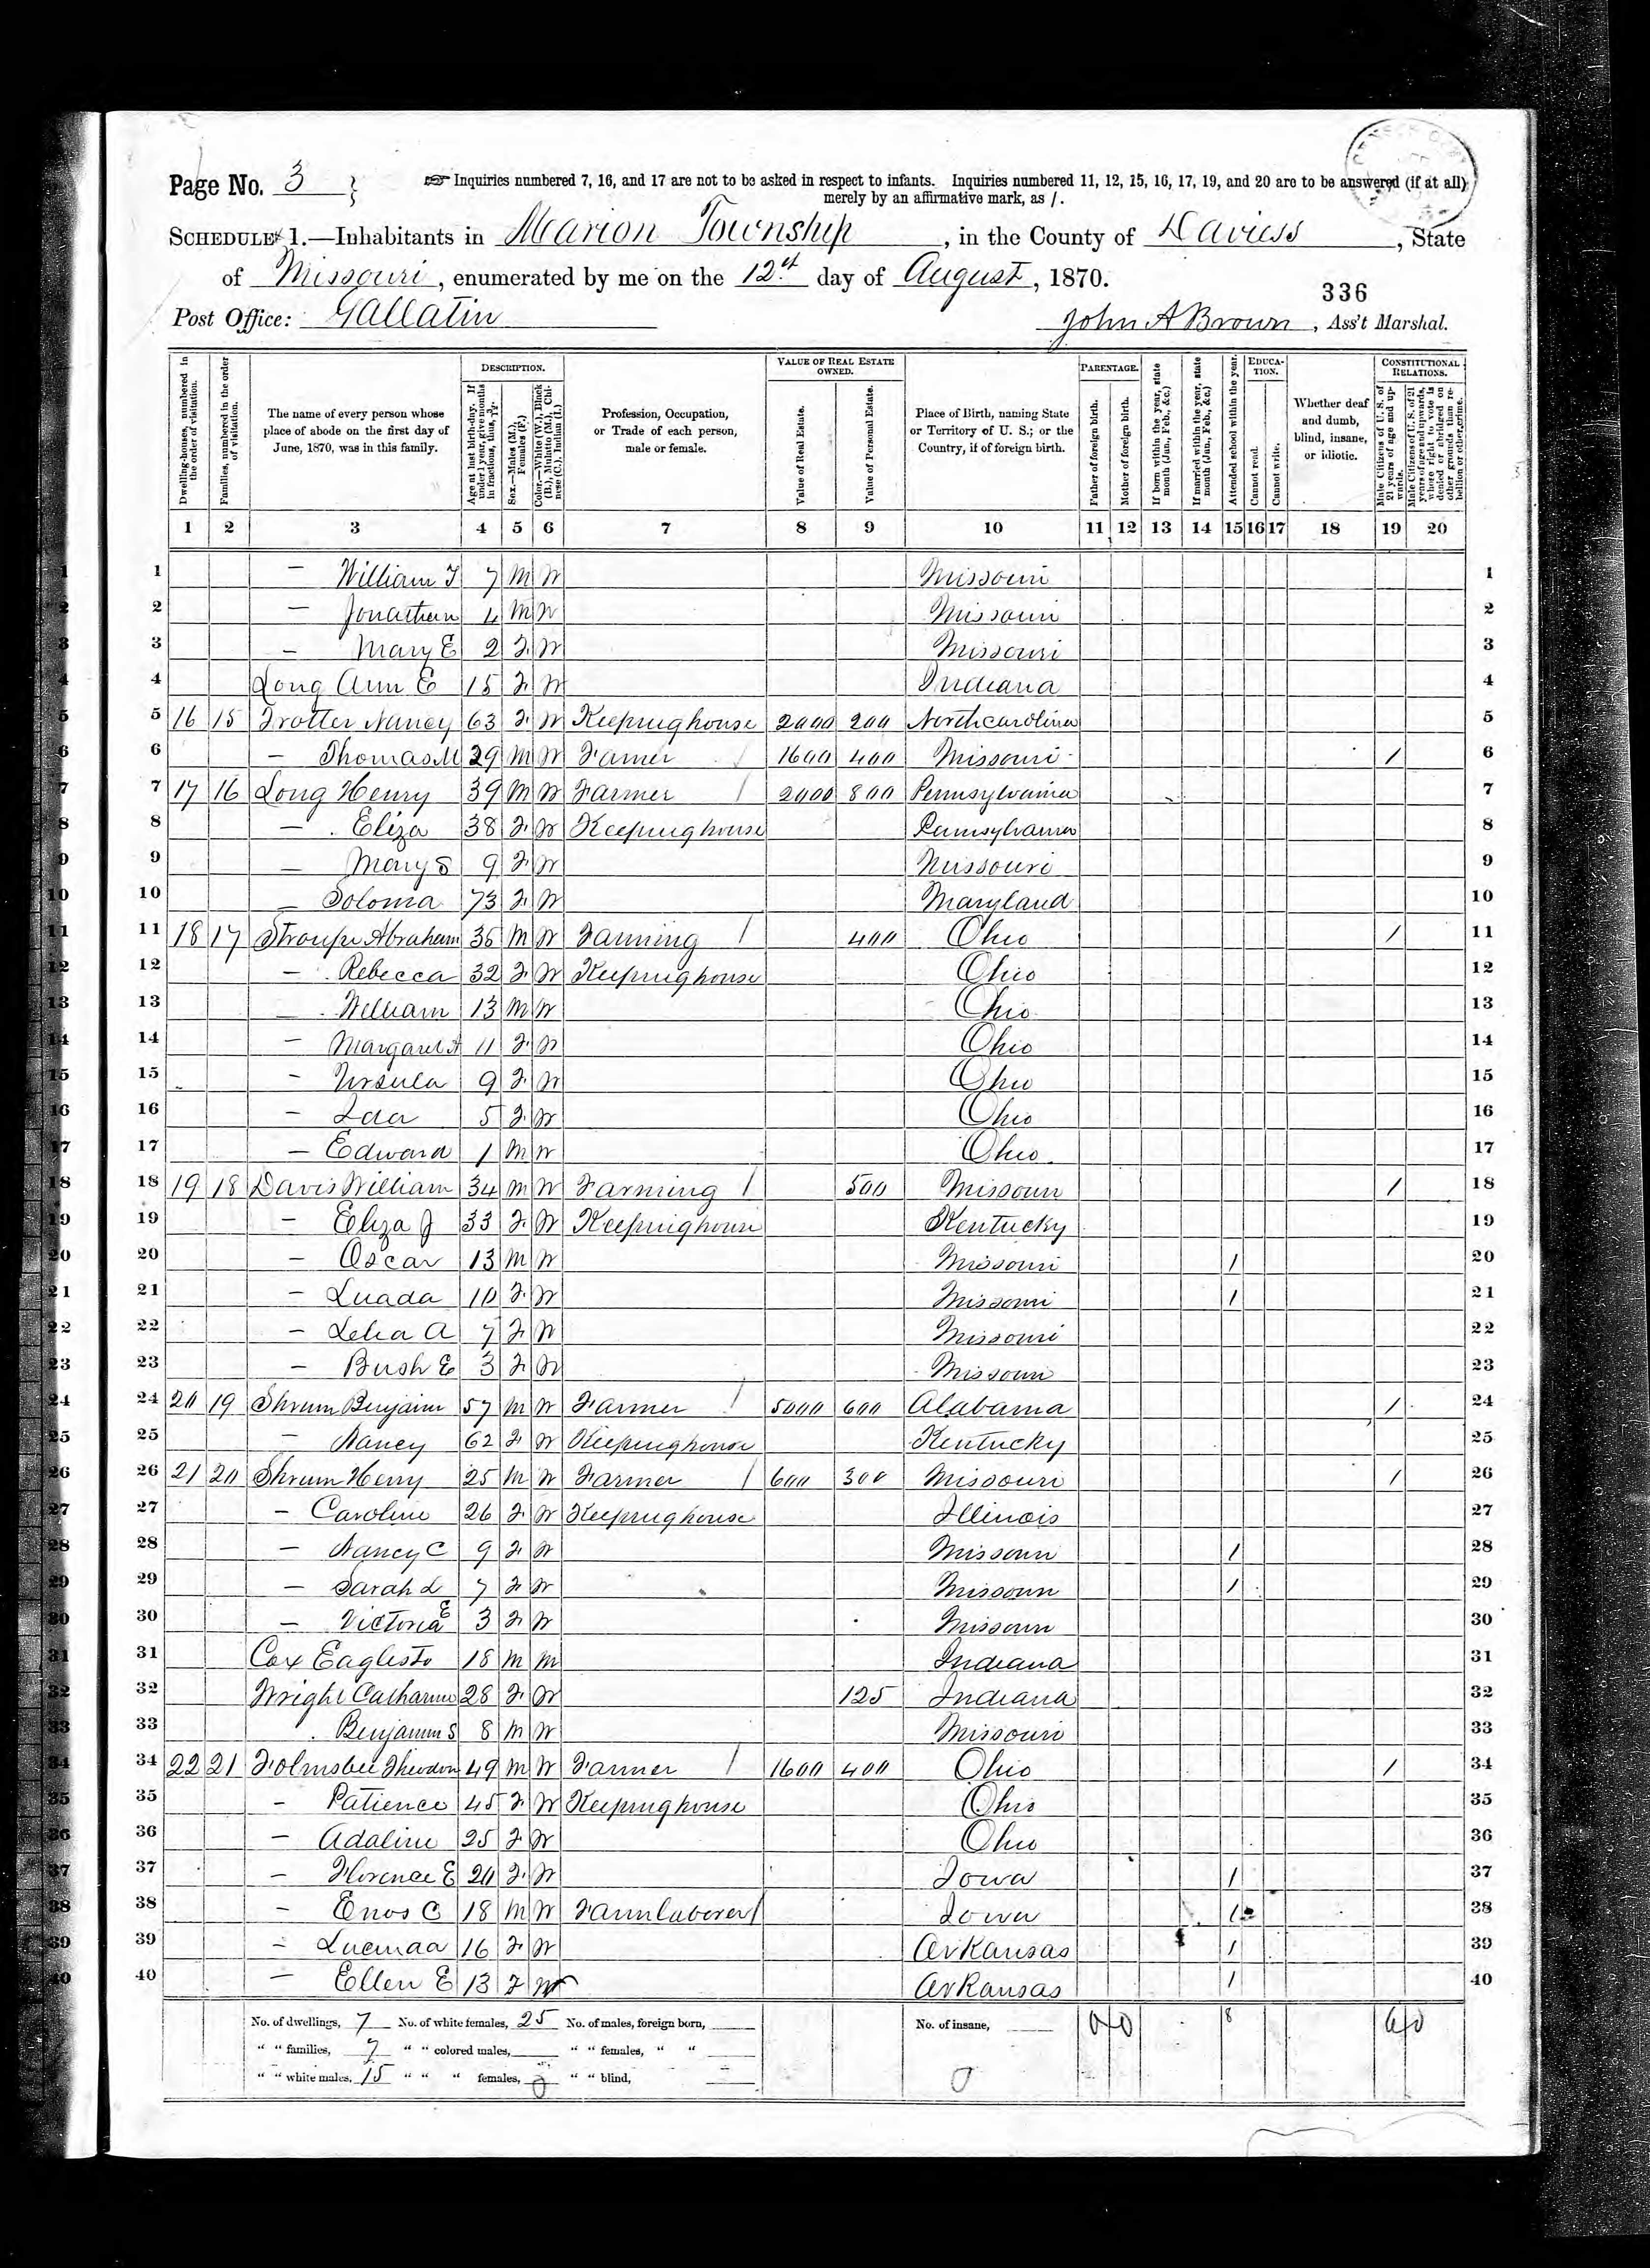 Page No. 3
☞ Inquiries numbered 7, 16, and 17 are not to be asked in respect to infants. Inquiries numbered 11, 12, 15, 16, 17, 19, and 20 are to be answered (if at all)
merely by an affirmative mark, as /.
SCHEDULE 1.—Inhabitants in Marion Township, in the County of Daviess, State
of Missouri, enumerated by me on the 12th day of August, 1870.
336
Post Office: Gallatin John A Brown, Ass't Marshal.
Dwelling-houses, numbered in the order of visitation.
Families, numbered in the order of visitation.
The name of every person whose place of abode on the first day of June, 1870, was in this family.
DESCRIPTION.
Age at last birth-day. If under 1 year, give months in fractions, thus, 3/12.
Sex.—Males (M.), Females (F.)
Color.—White (W.), Black (B.), Mulatto (M.), Chinese (C.), Indian (I.)
Profession, Occupation, or Trade of each person, male or female.
VALUE OF REAL ESTATE OWNED.
Value of Real Estate.
Value of Personal Estate.
Place of Birth, naming State or Territory of U. S.; or the Country, if of foreign birth.
PARENTAGE.
Father of foreign birth.
Mother of foreign birth.
If born within the year, state month (Jan., Feb., &c.)
If married within the year, state month (Jan., Feb., &c.)
Attended school within the year.
EDUCATION.
Cannot read.
Cannot write.
Whether deaf and dumb, blind, insane, or idiotic.
CONSTITUTIONAL RELATIONS.
Male Citizens of U. S. of 21 years of age and upwards.
Male Citizens of U. S. of 21 years of age and upwards, whose right to vote is denied or abridged on other grounds than rebellion or other crime.
1 2 3 4 5 6 7 8 9 10 11 12 13 14 15 16 17 18 19 20
1 — William T 7 M W Missouri 1
2 — Jonathan 4 M W Missouri 2
3 — Mary E 2 F W Missouri 3
4 Long Ann E 15 F W Indiana 4
5 16 15 Trotter Nancy 63 F W Keeping house 2000 200 North carolina 5
6 — Thomas M 29 M W Farmer / 1600 400 Missouri / 6
7 17 16 Long Henry 39 M W Farmer / 2000 800 Pennsylvania 7
8 — Eliza 38 F W Keeping house Pennsylvania 8
9 — Mary S 9 F W Missouri 9
10 — Soloma 73 F W Maryland 10
11 18 17 Stroupe Abraham 35 M W Farming / 400 Ohio / 11
12 — Rebecca 32 F W Keeping house Ohio 12
13 — William 13 M W Ohio 13
14 — Margaret A 11 F W Ohio 14
15 — Ursula 9 F W Ohio 15
16 — Ida 5 F W Ohio 16
17 — Edward 1 M W Ohio 17
18 19 18 Davis William 34 M W Farming / 500 Missouri / 18
19 — Eliza J 33 F W Keeping house Kentucky 19
20 — Oscar 13 M W Missouri / 20
21 — Luada 10 F W Missouri / 21
22 — Lelia A 7 F W Missouri 22
23 — Bush E 3 F W Missouri 23
24 20 19 Shrum Benjaim 57 M W Farmer / 5000 600 Alabama / 24
25 — Nancy 62 F W Keeping house Kentucky 25
26 21 20 Shrum Henry 25 M W Farmer / 600 300 Missouri / 26
27 — Caroline 26 F W Keeping house Illinois 27
28 — Nancy C 9 F W Missouri / 28
29 — Sarah L 7 F W Missouri / 29
30 — Victoria E 3 F W Missouri 30
31 Cox 18 M M Indiana 31
32 Wright Catharine 28 F W 125 Indiana 32
33 Benjamin S 8 M W Missouri 33
34 22 21 Folmsbee Theodore 49 M W Farmer / 1600 400 Ohio / 34
35 — Patience 45 F W Keeping house Ohio 35
36 — Adaline 25 F W Ohio 36
37 — Florence E 20 F W Iowa / 37
38 — Enos C 18 M W Farm laborer / Iowa / 38
39 — 16 F W Arkansas / 39
40 — Ellen E 13 F W Arkansas / 40
No. of dwellings, 7 No. of white females, 25 No. of males, foreign born, No. of insane, 8
" " families, 7 " " colored males, " " females, " "
" " white males, 15 " " " females, " " blind,